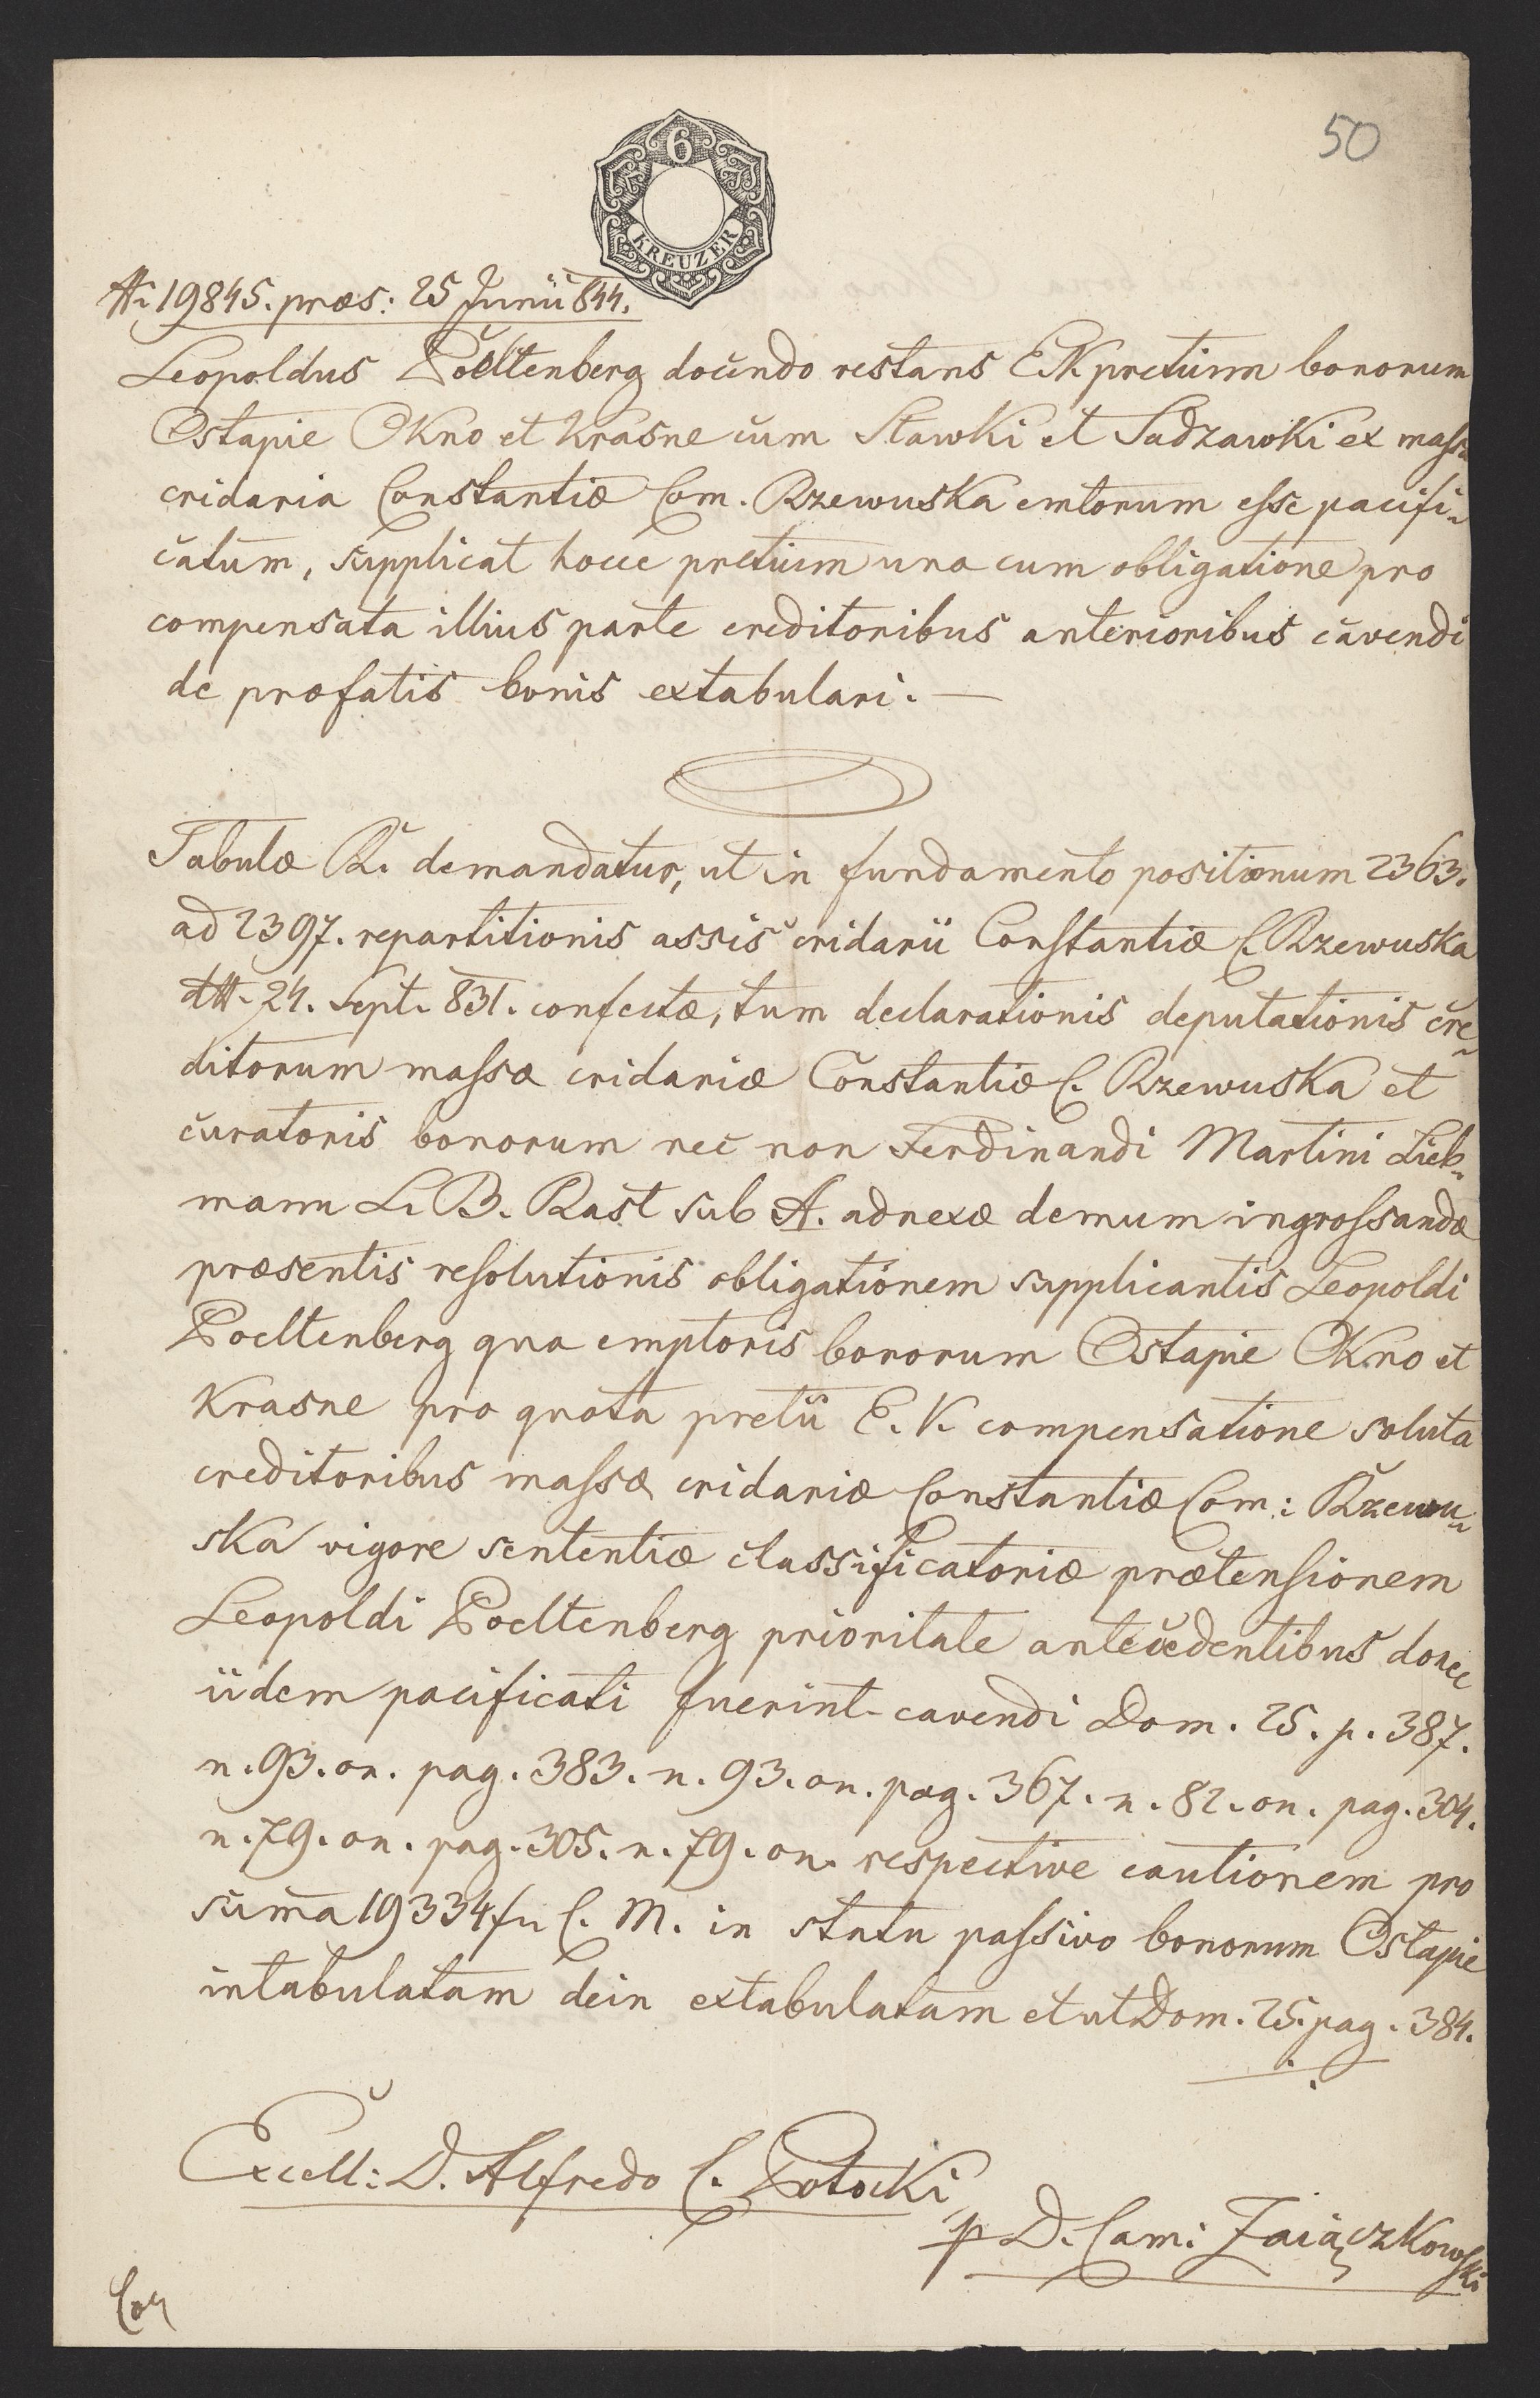 50
6
KREUZER
19845. præs: 25 Junii 844.
Leopoldus Poeltenberg docendo restans E.K. pretium bonorum
Ostapie Okno et Krasne cum Stawki et Sadzawki ex massa
cridaria Constantiæ Com. Rzewuska emtorum esse pacifi-
catum, supplicat hocce pretium una cum obligatione pro
compensata illius parte creditoribus anterioribus cavendi
de præfatis bonis extabulari. —
Tabulæ R. demandatur, ut in fundamento positionum 2363.
ad 2397. repartitionis assis cridarii Constantiæ C. Rzewuska
24. Sept. 831. confectæ, tum declarationis deputationis cre-
ditorum massæ cridariæ Constantiæ C. Rzewuska et
curatoris bonorum nec non Ferdinandi Martini Lieb-
mann L. B. Rast sub A. adnexæ demum ingrossandæ
præsentis resolutionis obligationem supplicantis Leopoldi
Poeltenberg qua emptoris bonorum Ostapie Okno et
Krasne pro quota pretii E. K. compensatione soluta
creditoribus massæ cridariæ Constantiæ Com: Rzewu-
ska vigore sententiæ classificatoriæ prætensionem
Leopoldi Poeltenberg prioritate antecedentibus donec
iidem pacificati fuerint cavendi Dom. 25. p. 387.
n. 93. on. pag. 383. n. 93. on. pag. 367. n. 82. on. pag. 304.
n. 79. on. pag. 305. n. 79. on. respective cautionem pro
suma 19334 fn C. M. in statu passivo bonorum Ostapie
intabulatam dein extabulatam et ut Dom. 25. pag. 384.
Excell: D. Alfredo C. Potocki
p D. Cam: Zaiączkowski